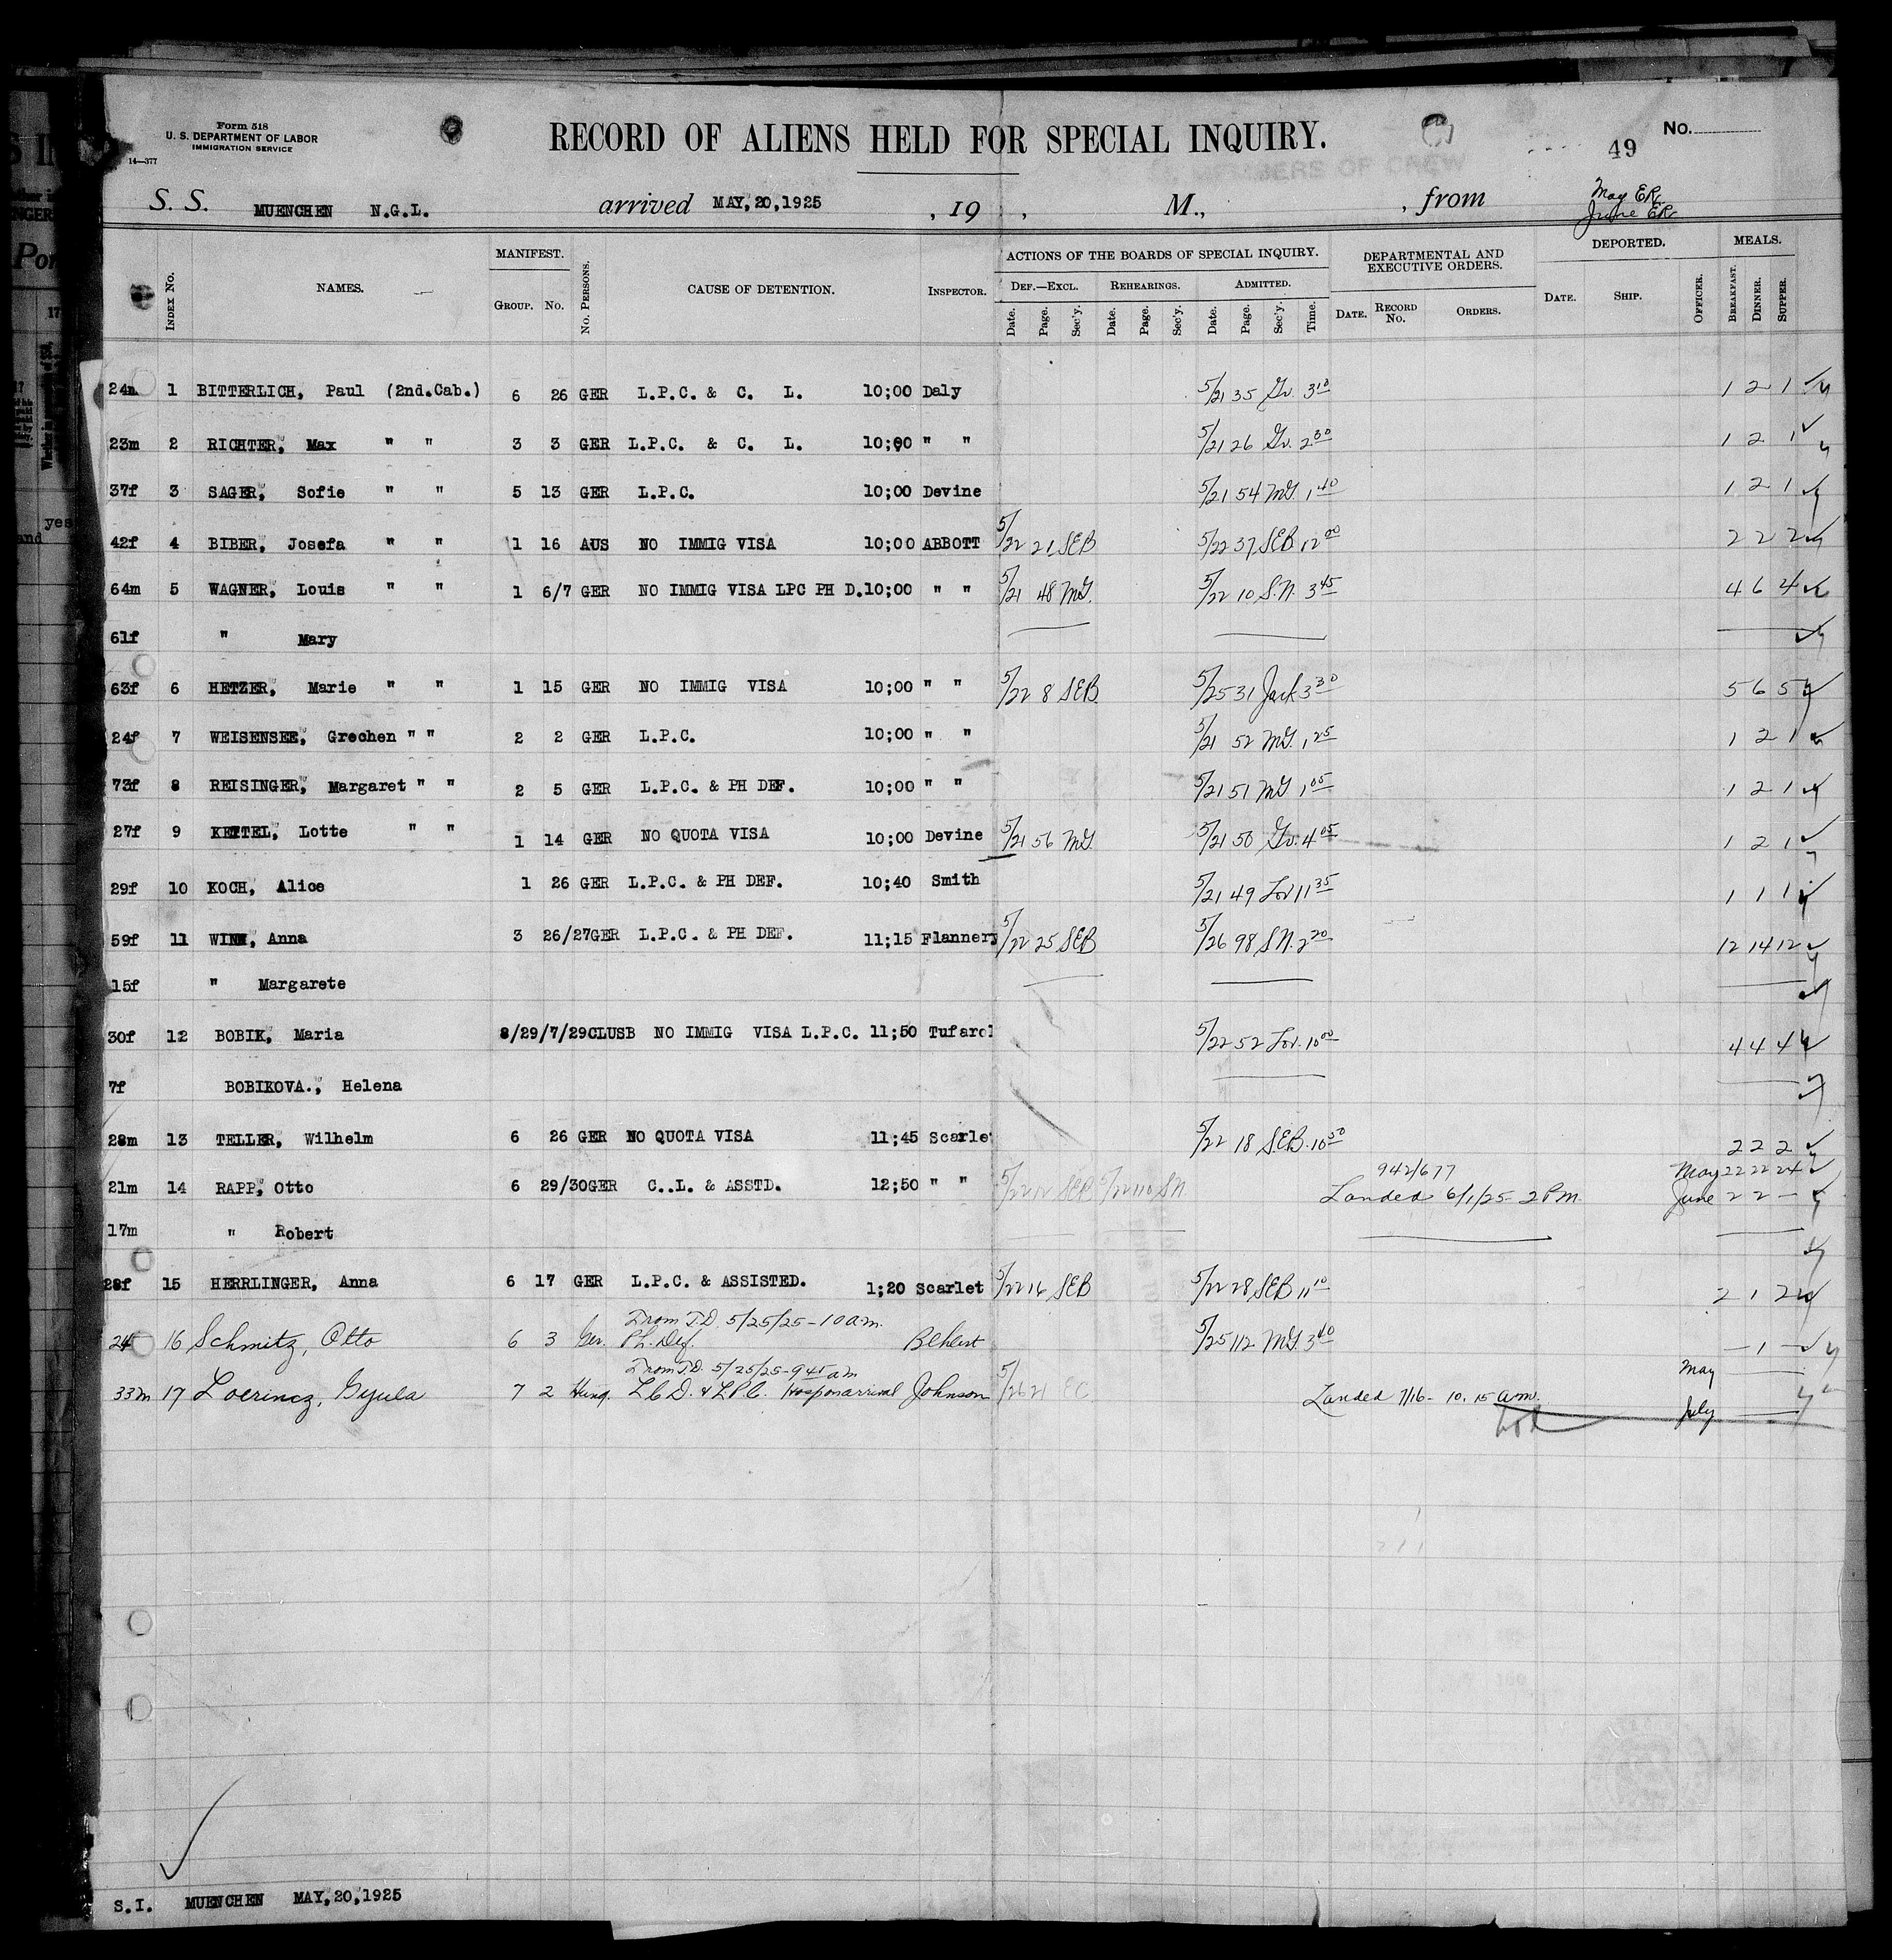 Form 518
U. S. DEPARTMENT OF LABOR
IMMIGRATION SERVICE
14—377
RECORD OF ALIENS HELD FOR SPECIAL INQUIRY.
MEMBERS OF CREW
49 No.
S. S. MUENCHEN N.G.L. arrived MAY,20,1925 , 19 , M., , from
May ER
June ER
INDEX NO. NAMES. MANIFEST. GROUP. NO. NO. PERSONS. CAUSE OF DETENTION. INSPECTOR. ACTIONS OF THE BOARDS OF SPECIAL INQUIRY. DEF.—EXCL. REHEARINGS. ADMITTED. DEPARTMENTAL AND EXECUTIVE ORDERS. DEPORTED. MEALS.
Date. Page. Sec'y. Date. Page. Sec'y. Date. Page. Sec'y. Time. DATE. RECORD NO. ORDERS. DATE. SHIP. OFFICER. BREAKFAST. DINNER. SUPPER.
24m 1 BITTERLICH, Paul (2nd.Cab.) 6 26 GER L.P.C. & C. L. 10;00 Daly 5/21 35 Gv. 3 10 1 2 1
23m 2 RICHTER, Max " " 3 3 GER L.P.C. & C. L. 10;00 " " 5/21 26 Gv. 2 30 1 2 1
37f 3 SAGER, Sofie " " 5 13 GER L.P.C. 10;00 Devine 5/21 54 MG 1 40 1 2 1
42f 4 BIBER, Josefa " " 1 16 AUS NO IMMIG VISA 10;00 ABBOTT 5/22 21 SEB 5/22 37 SEB 12 00 2 2 2
64m 5 WAGNER, Louis " " 1 6/7 GER NO IMMIG VISA LPC PH D. 10;00 " " 5/21 48 MG. 5/22 10 S.N. 3 45 4 6 4
61f " Mary
63f 6 HETZER, Marie " " 1 15 GER NO IMMIG VISA 10;00 " " 5/22 8 SEB. 5/25 31 Jack 3 30 5 6 5
24f 7 WEISENSEE, Grechen " " 2 2 GER L.P.C. 10;00 " " 5/21 52 MG. 1 25 1 2 1
73f 8 REISINGER, Margaret " " 2 5 GER L.P.C. & PH DEF. 10;00 " " 5/21 51 MG 1 05 1 2 1
27f 9 KETTEL, Lotte " " 1 14 GER NO QUOTA VISA 10;00 Devine 5/21 56 MG. 5/21 50 Gv. 4 05 1 2 1
29f 10 KOCH, Alice 1 26 GER L.P.C. & PH DEF. 10;40 Smith 5/21 49 Lov 11 35 1 1 1
59f 11 WINK, Anna 3 26/27GER L.P.C. & PH DEF. 11;15 Flannery 5/22 25 SEB 5/26 98 S.N. 2 20 12 14 12
15f " Margarete
30f 12 BOBIK, Maria 8/29/7/29CLUSB NO IMMIG VISA L.P.C. 11;50 Tufarol 5/22 52 Lov. 10 00 4 4 4
7f BOBIKOVA., Helena
28m 13 TELLER, Wilhelm 6 26 GER NO QUOTA VISA 11;45 Scarle 5/22 18 SEB. 10 50 2 2 2
942/677 May 22 22 24
21m 14 RAPP, Otto 6 29/30GER C..L. & ASSTD. 12;50 " " 5/22 12 SEB 5/22 110 SN Landed 6/1/25 - 2 P.M. June 2 2 —
17m " Robert
28f 15 HERRLINGER, Anna 6 17 GER L.P.C. & ASSISTED. 1;20 Scarlet 5/22 16 SEB 5/22 28 SEB 11 10 2 1 2
From T.D. 5/25/25 - 10 am.
24 16 Schmitz, Otto 6 3 Ger. Ph. Def. 5/25 112 MG. 3 40 — 1 —
From T.D. 5/25/25 - 9 45 am May
33m 17 Loerincz, Gyula 7 2 Hung. L.C.D. & L.P.C. Hosp on arrival Johnson 5/26 21 EC Landed 7/16 - 10.15 am.
July
S.I. MUENCHEN MAY,20,1925